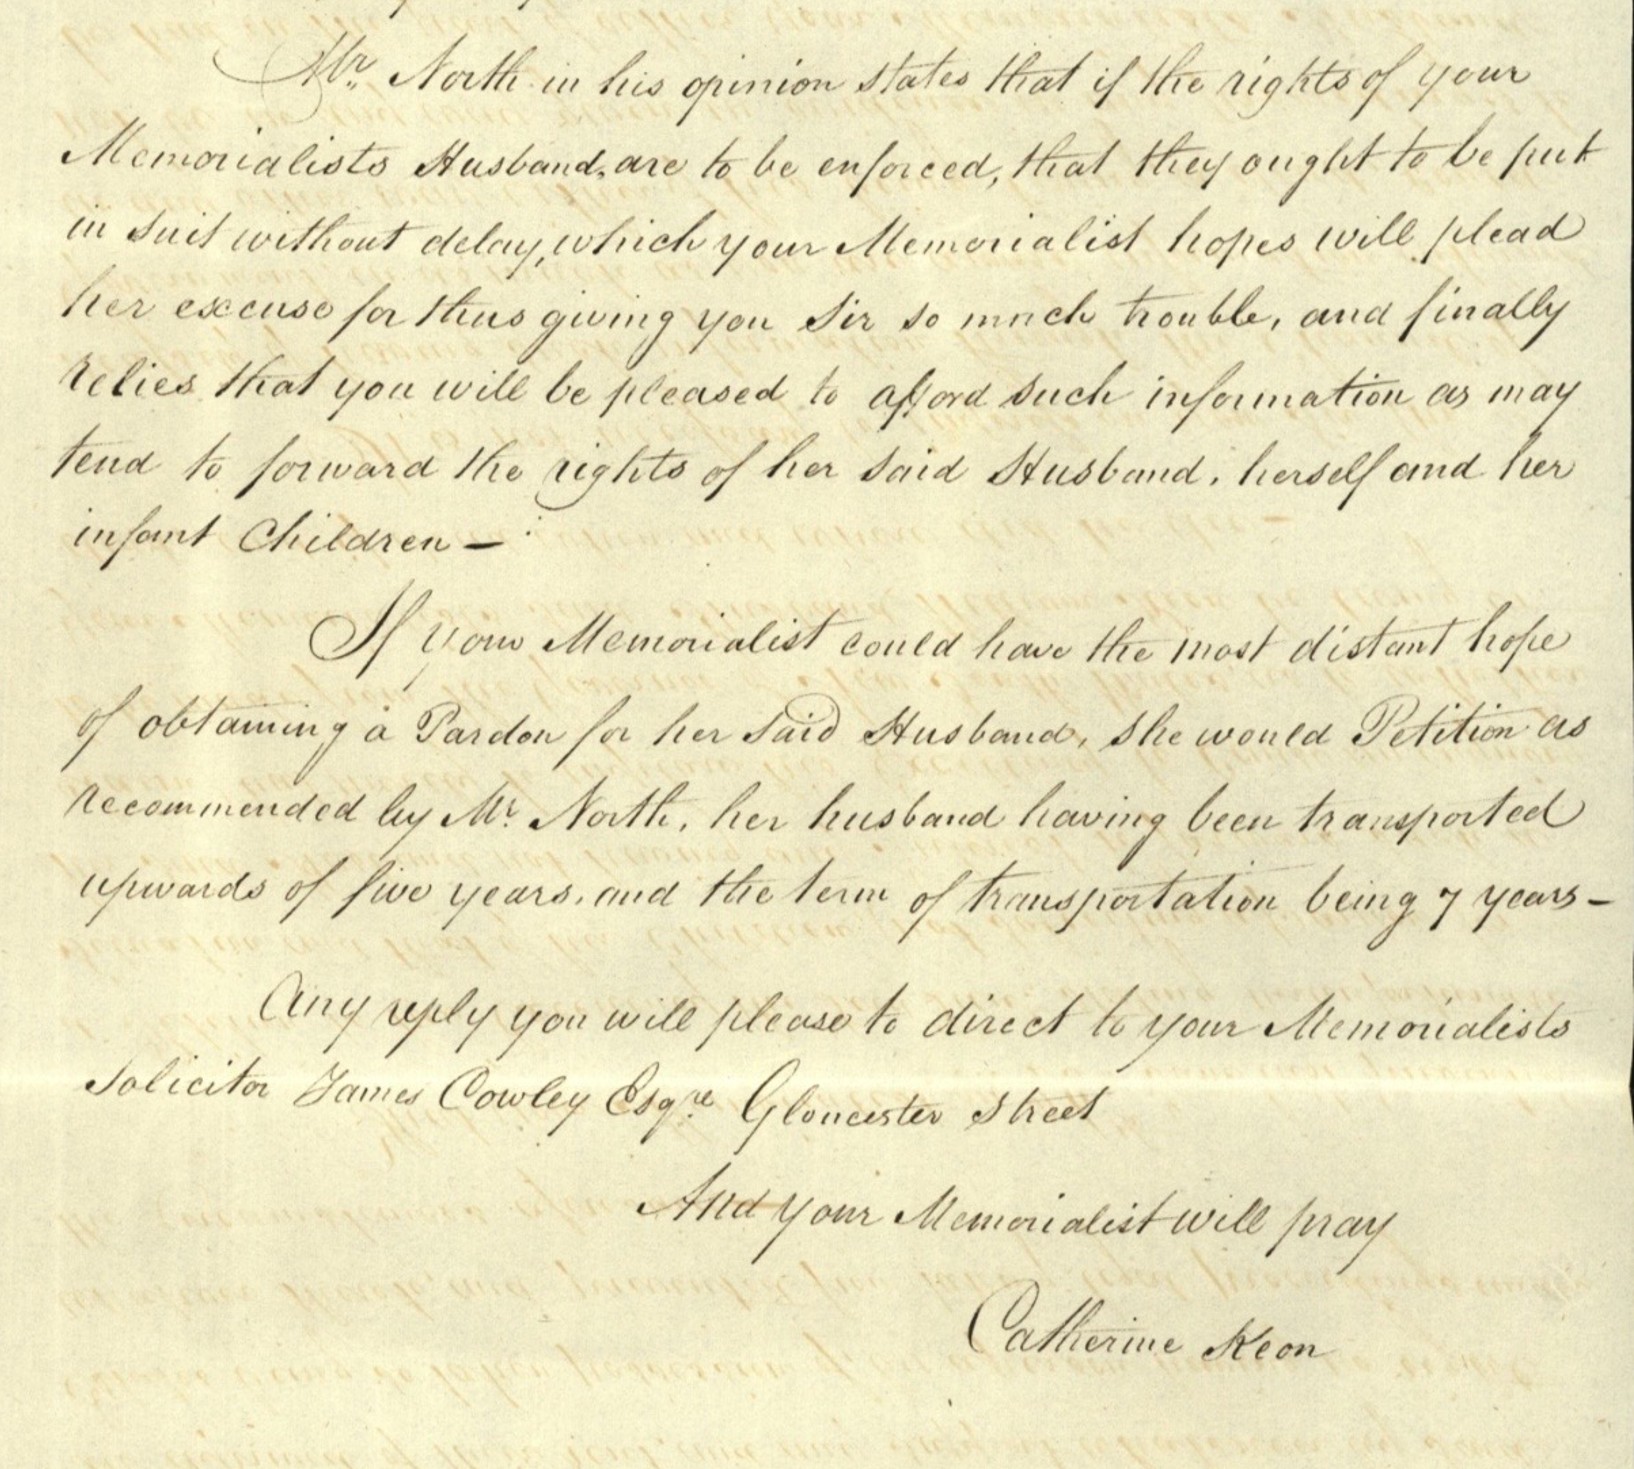 Mr. North in his opinion states that if the rights of your
Memorialists Husband, are to be enforced, that they ought to be put
in suit without delay, which your Memorialist hopes will plead
her excuse for thus giving you Sir so much trouble, and finally
relies that you will be pleased to afford such information as may
tend to forward the rights of her said Husband, herself and her
infant Children —
If your Memorialist could have the most distant hope
of obtaining a Pardon for her said Husband, she would Petition as
recommended by Mr. North, her husband having been transported
upwards of five years, and the term of transportation being 7 years —
Any reply you will please to direct to your Memorialists
Solicitor James Cowley Esqre. Gloucester Street
And your Memorialist will pray
Catherine Keon